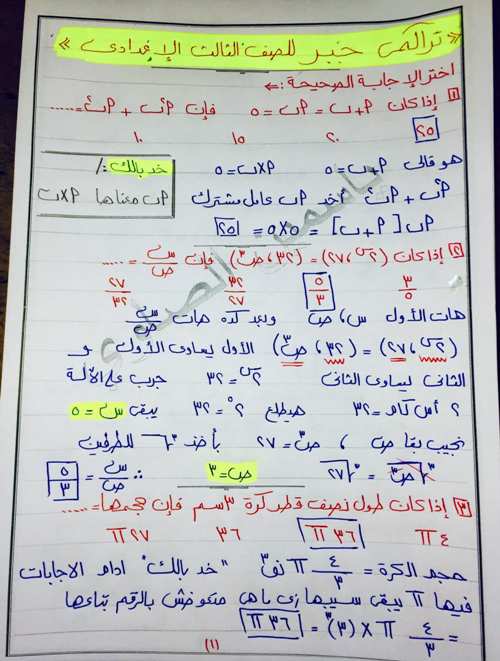 « تراكمى جبر للصف الثالث الإعدادى »
اختر الإجابة الصحيحة :-
[١] إذا كان P + ب = Pب = ٥ فإن P²ب + Pب² = ......
٢٥ ٢٠ ١٥ ١٠
هو قالى P + ب = ٥ P×ب = ٥ خد بالك :/
P²ب + Pب² ناخد Pب عامل مشترك Pب معناها P×ب
Pب [P + ب] = ٥×٥ = ٢٥
[٢] إذا كان (٢^س ، ٢٧) = (٣٢ ، ص³) فإن س/ص = ......
٣/٥ ٥/٣ ٣٢/٢٧ ٢٧/٣٢
هات الأول س ، ص وبعد كده هات س/ص
(٢^س ، ٢٧) = (٣٢ ، ص³) الأول يساوى الأول و
الثانى يساوى الثانى ٢^س = ٣٢ جرب على الآلة
٢ أس كام = ٣٢ هيطلع ٢^٥ = ٣٢ يبقى س = ٥
نجيب بقا ص ، ص³ = ٢٧ بأخذ ∛ للطرفين
∛ص³ = ∛٢٧ ص = ٣ ∴ س/ص = ٥/٣
[٣] إذا كان طول نصف قطر كرة ٣سم فإن حجمها = ......
٤π ٣٦π ٣٦ ٢٧π
حجم الكرة = ٤/٣ π نق³ "خد بالك" أدام الاجابات
فيها π يبقى سيبها زى ماهى متعوضش بالرقم بتاعها
= ٤/٣ π × (٣)³ = ٣٦π
(١)